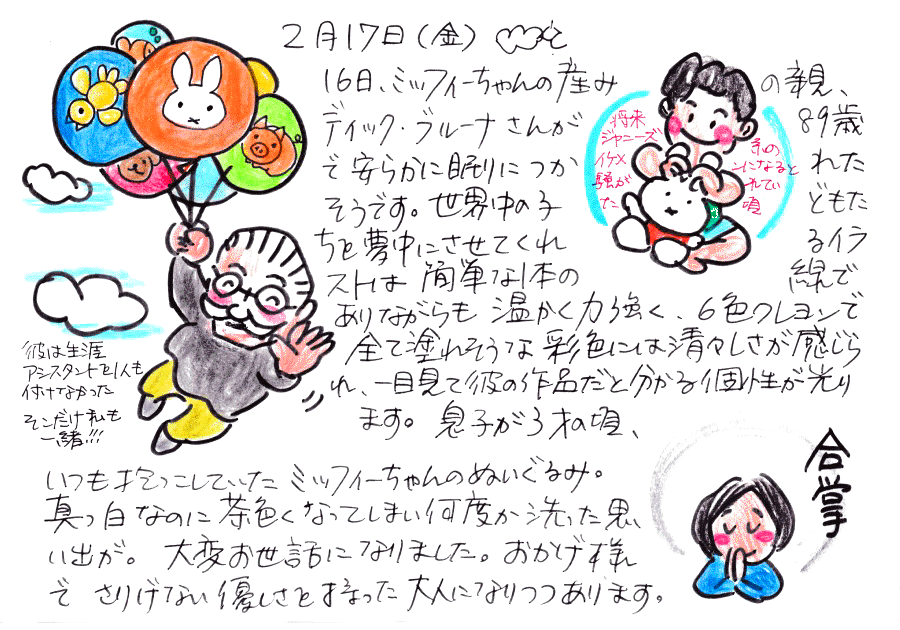 2月17日(金)
16日、ミッフィーちゃんの産みの親、
ディック・ブルーナさんが89歳
で安らかに眠りにつかれた
そうです。世界中の子どもた
ちを夢中にさせてくれるイラ
ストは簡単な1本の線で
ありながらも温かく力強く、6色クレヨンで
全て塗れそうな彩色には清々しさが感じら
れ、一目見て彼の作品だと分かる個性が光り
ます。息子が3才の頃、
いつも抱っこしていたミッフィーちゃんのぬいぐるみ。
真っ白なのに茶色くなってしまい何度か洗った思
い出が。大変お世話になりました。おかげ様
でさりげない優しさを持った大人になりつつあります。
将来
ジャニーズ系の
イケメンになると
騒がれてい
た頃
彼は生涯
アシスタントを1人も
付けなかった
そこだけ私も
一緒!!!
合掌